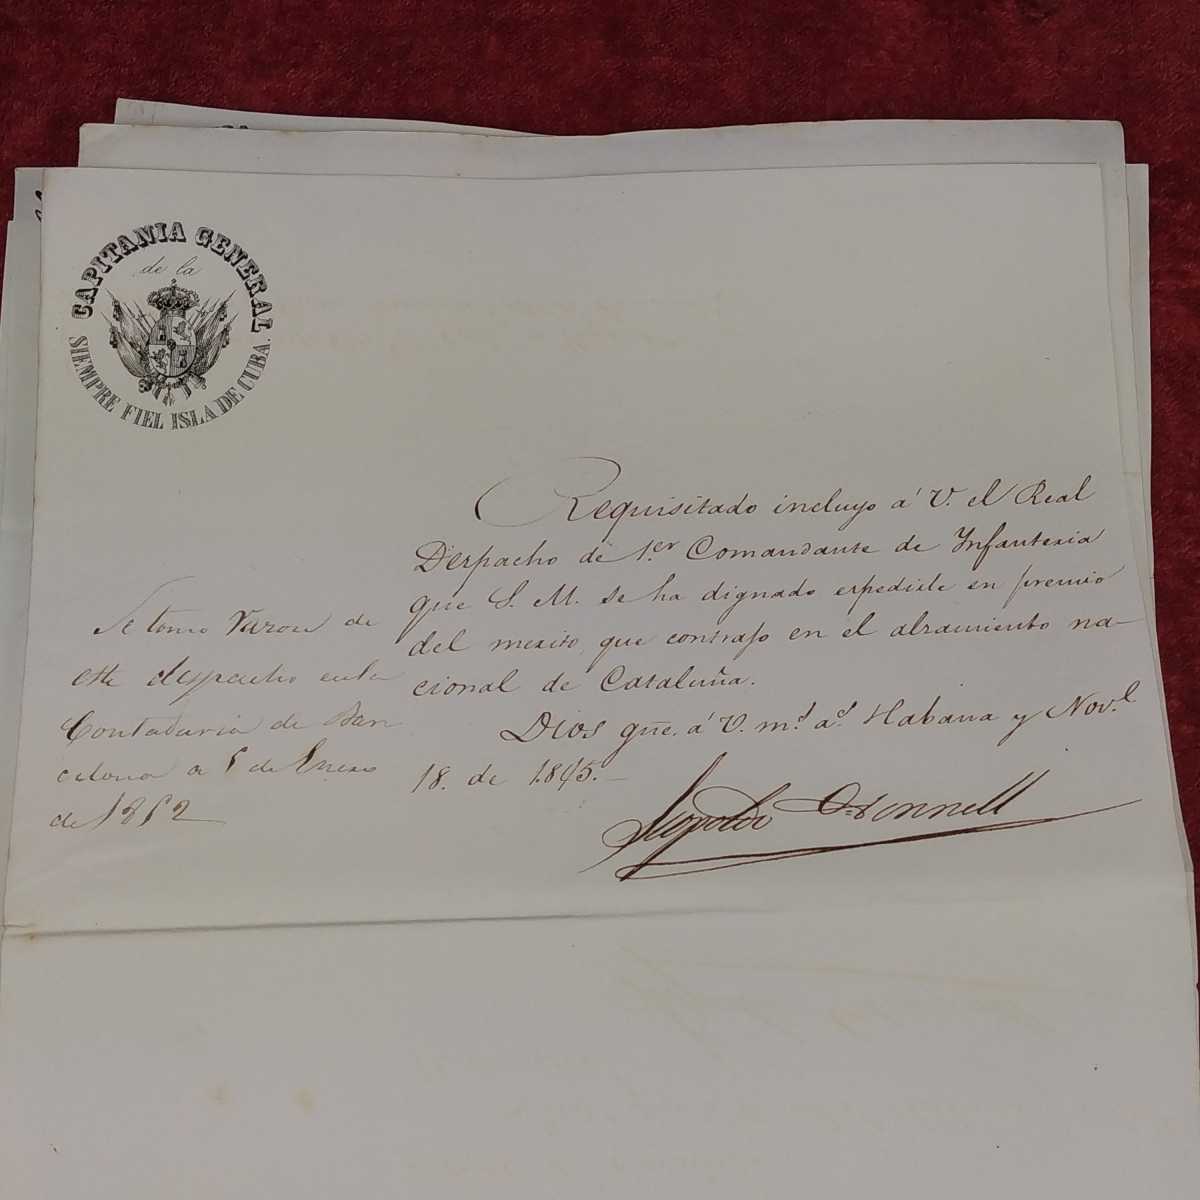 CAPITANIA GENERAL
de la
SIEMPRE FIEL ISLA DE CUBA.
Requisitado incluyo á V. el Real
Despacho de 1.er Comandante de Ynfanteria
que S. M. se ha dignado expedirle en premio
del merito que contrajo en el alzamiento na-
cional de Cataluña.
Dios gũe. á V. m.s a.s Habana y Nov.e
18. de 1.845.
Leopoldo O=Donnell
Se tomo razon de
este despacho en la
Contaduria de Bar
celona a de Enero
de 1852